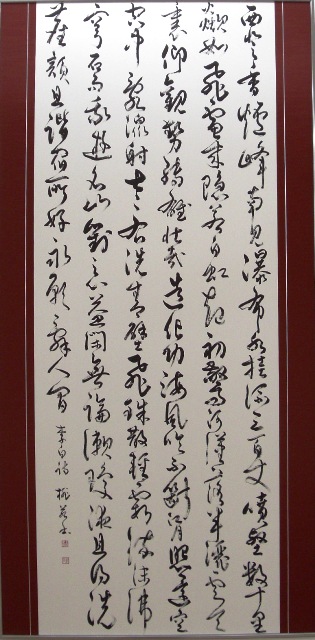 西登香爐峰南見瀑布水挂流三百丈噴壑數十里
欻如飛電來隱若白虹起初驚河漢落半灑雲天
裏仰觀勢轉雄壯哉造化功海風吹不斷江月照還空
空中亂潈射左右洗青壁飛珠散輕霞流沫沸
穹石而我遊名山對之心益閑無論漱瓊液且得洗
塵顏且諧宿所好永願辭人間
李白詩 書